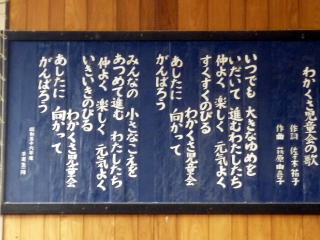 わかくさ児童会の歌
作詞 佐々木 裕子
作曲 萩原 由喜子
いつでも 大きなゆめを
いだいて 進む わたしたち
仲よく 楽しく 元気よく
すくすくのびる
わかくさ児童会
あしたに 向かって
がんばろう
みんなの 小さなこえを
あつめて進む わたしたち
仲よく 楽しく 元気よく
いきいきのびる
わかくさ児童会
あしたに 向かって
がんばろう